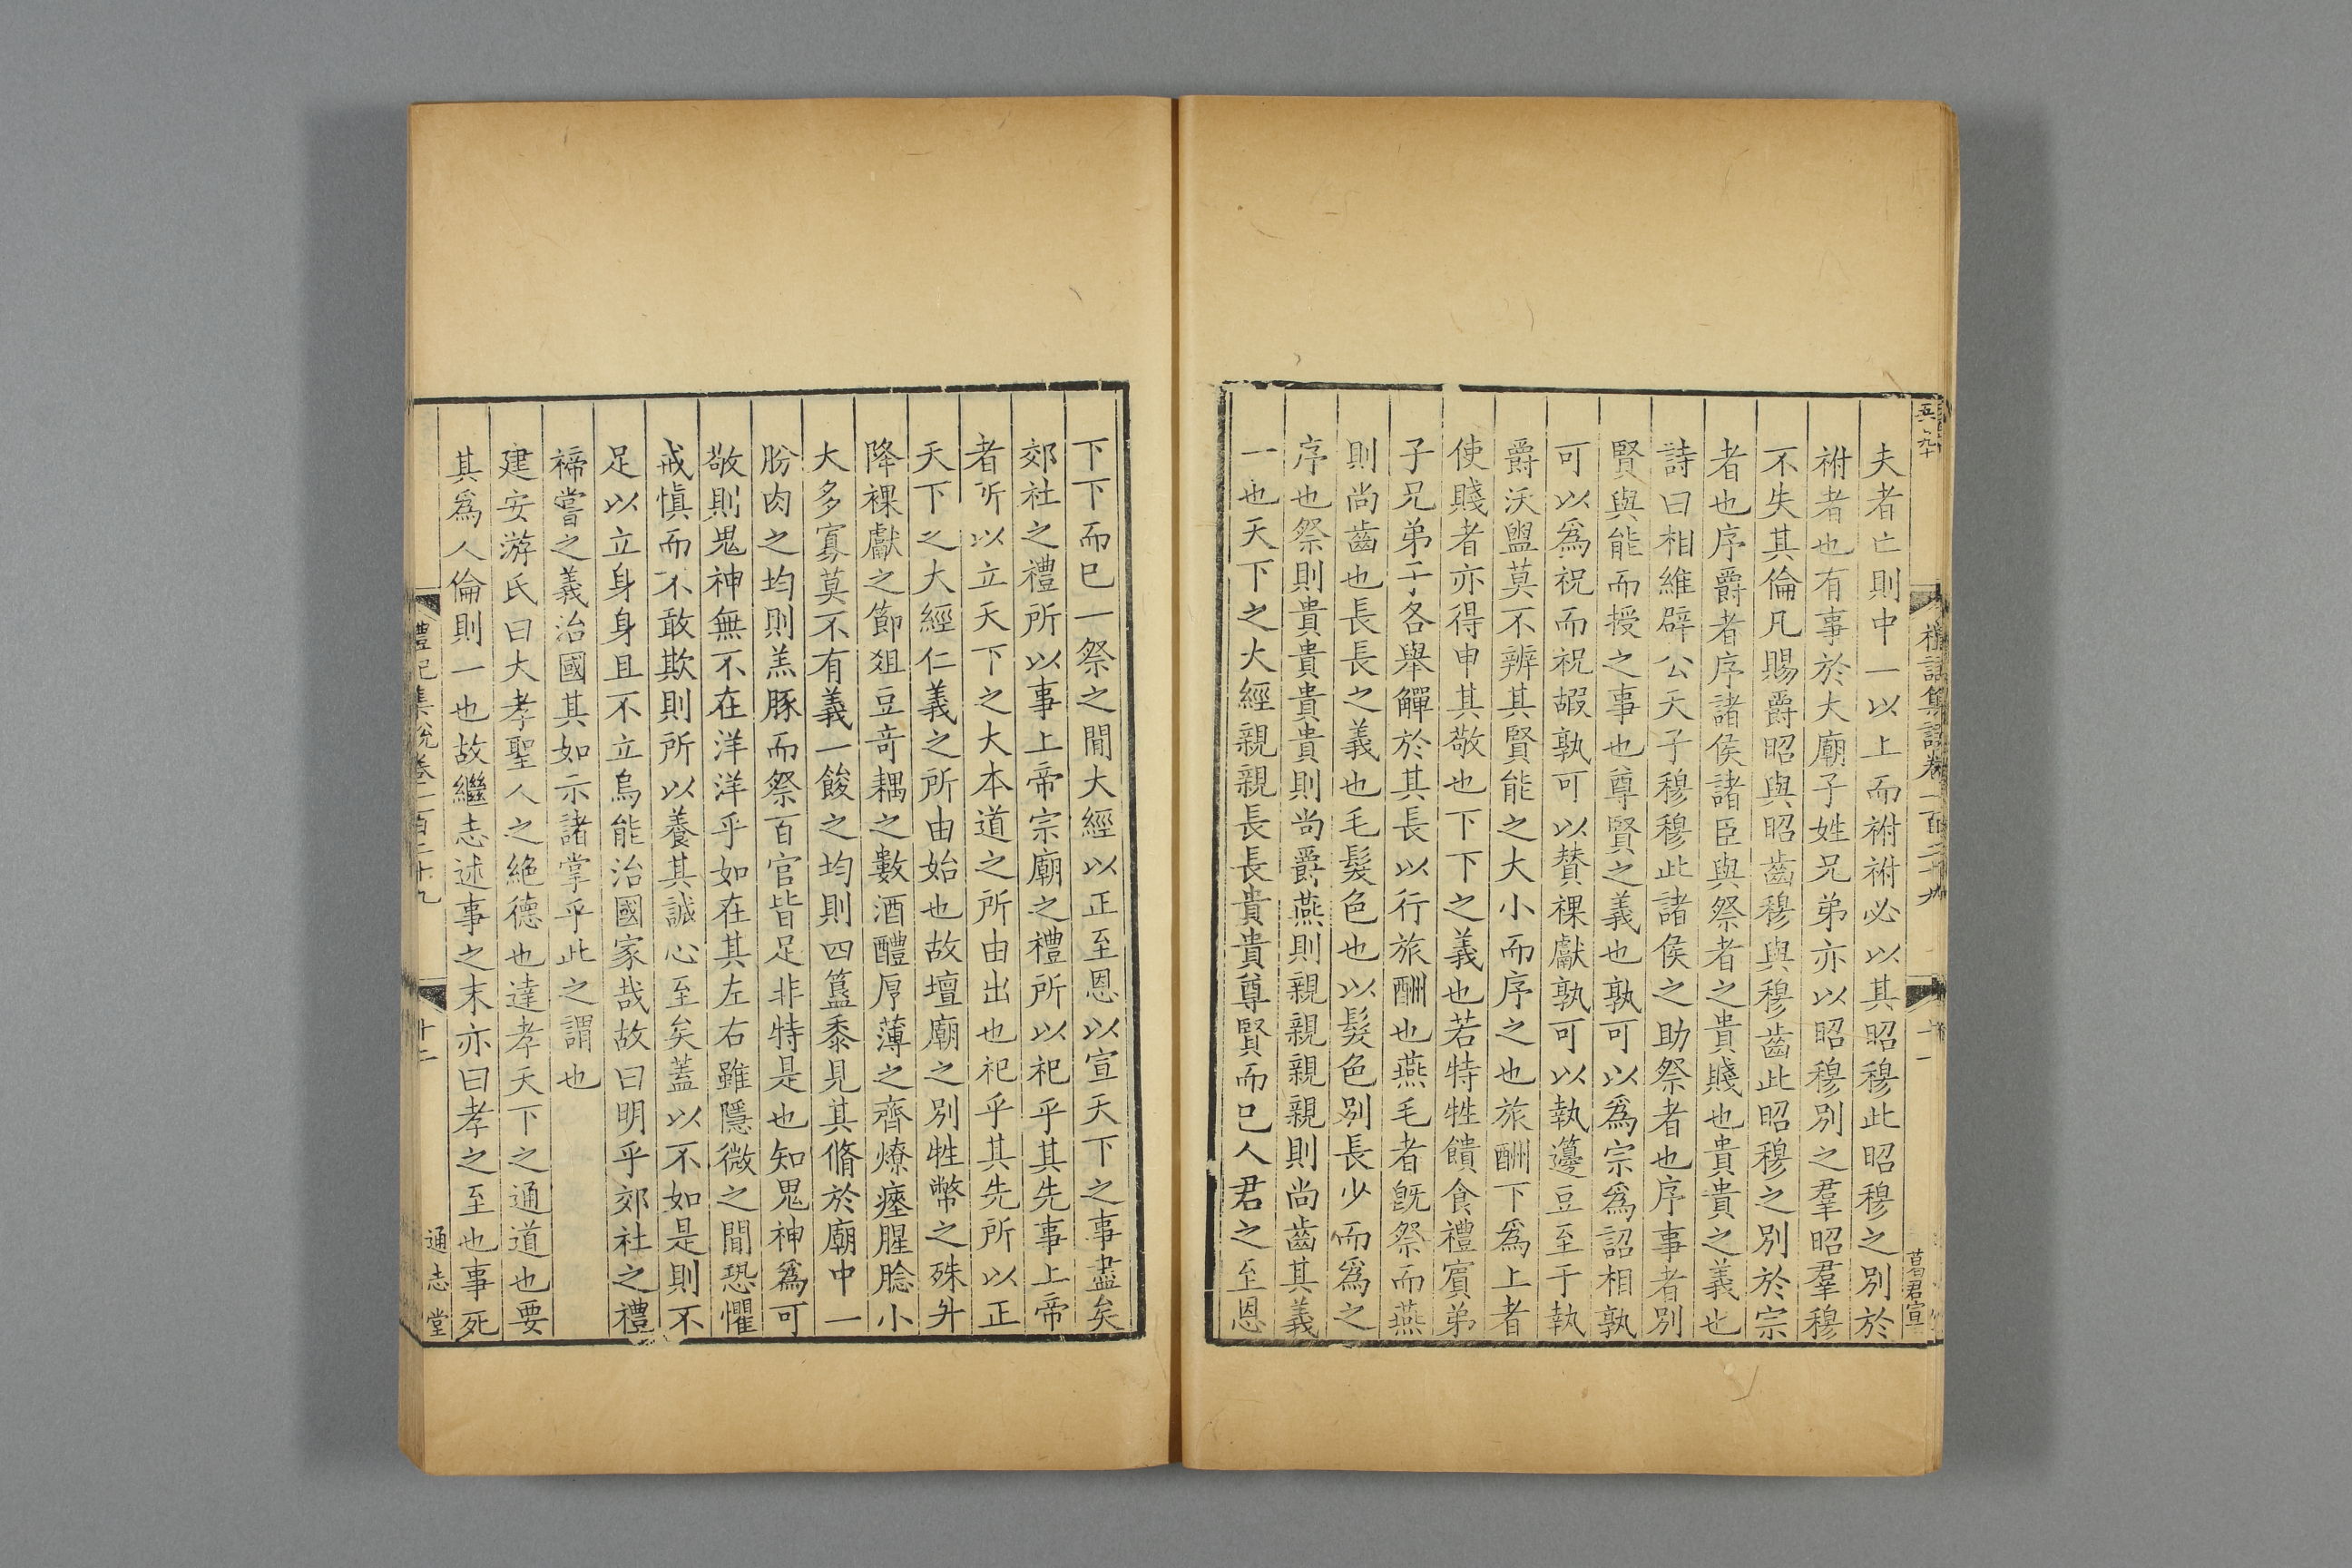 夫者亡則中一以上而祔祔必以其昭穆此昭穆之別於
祔者也有事於大廟子姓兄弟亦以昭穆別之羣昭羣穆
不失其倫凡賜爵昭與昭齒穆與穆齒此昭穆之別於宗
者也序爵者序諸侯諸臣與祭者之貴賤也貴貴之義也
詩曰相維辟公天子穆穆此諸侯之助祭者也序事者別
賢與能而授之事也尊賢之義也孰可以爲宗爲詔相孰
可以爲祝而祝嘏孰可以賛祼獻孰可以執籩豆至于執
爵沃盥莫不辨其賢能之大小而序之也旅酬下爲上者
使賤者亦得申其敬也下下之義也若特牲饋食禮賔弟
子兄弟子各舉觶於其長以行旅酬也燕毛者旣祭而燕
則尚齒也長長之義也毛髮色也以髮色別長少而爲之
序也祭則貴貴貴貴則尚爵燕則親親親親則尚齒其義
一也天下之大經親親長長貴貴尊賢而巳人君之至恩
下下而巳一祭之閒大經以正至恩以宣天下之事盡矣
郊社之禮所以事上帝宗廟之禮所以祀乎其先事上帝
者所以立天下之大本道之所由出也祀乎其先所以正
天下之大經仁義之所由始也故壇廟之別牲幣之殊升
降祼獻之節爼豆竒耦之數酒醴厚薄之齊燎瘞腥腍小
大多寡莫不有義一餕之均則四簋黍見其脩於廟中一
胏肉之均則羔豚而祭百官皆足非特是也知鬼神爲可
敬則鬼神無不在洋洋乎如在其左右雖隱微之閒恐懼
戒愼而不敢欺則所以養其誠心至矣蓋以不如是則不
足以立身身且不立烏能治國家哉故曰明乎郊社之禮
禘嘗之義治國其如示諸掌乎此之謂也
建安游氏曰大孝聖人之絶德也達孝天下之通道也要
其爲人倫則一也故繼志述事之末亦曰孝之至也事死
禮記集說卷一百二十九
十二
通志堂